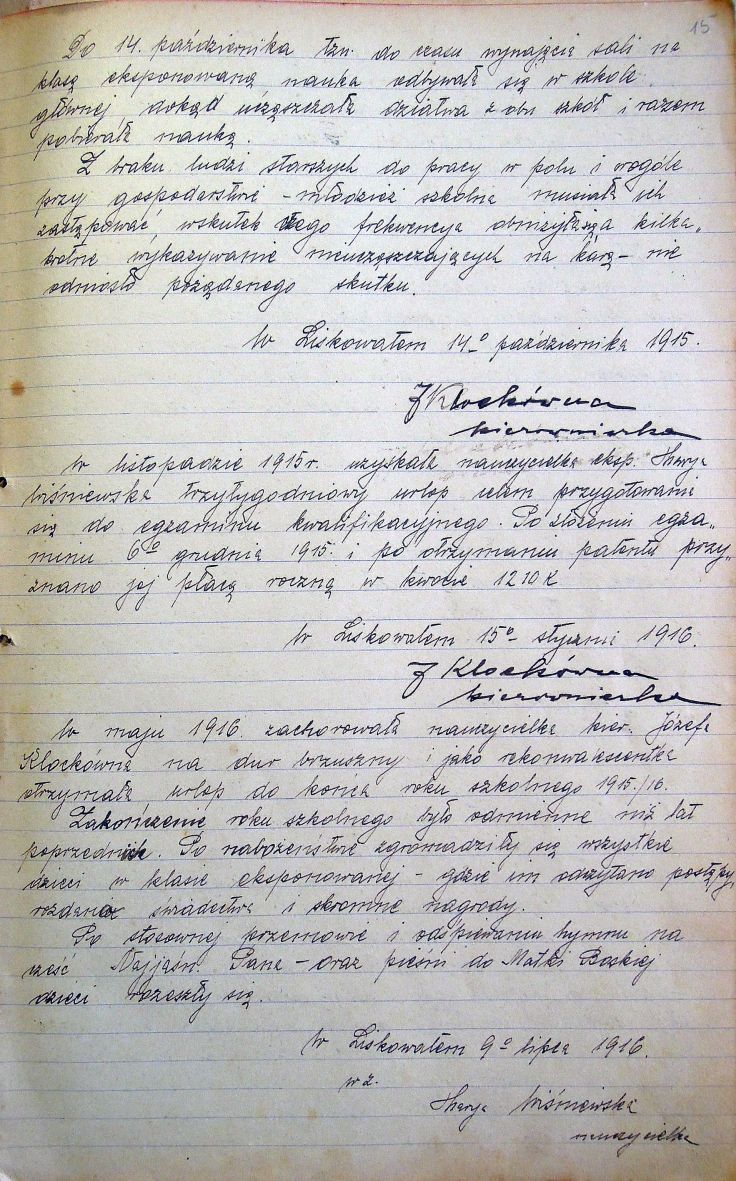 15
Do 14. października tzn. do czasu wynajęcia sali na
klasę eksponowaną nauka odbywała się w szkole
głównej dokąd uczęszczała dziatwa z obu szkół i razem
pobierała naukę.
Z braku ludzi starszych do pracy w polu i wogóle
przy gospodarstwie - młodzież szkolna musiała ich
zastępować, wskutek czego frekwencya obniżyła się a kilka„
krotne wykazywanie nieuczęszczających na karę - nie
odniosło pożądanego skutku.
W Liskowatem 14º października 1915.
J Klockówna
kierowniczka
W listopadzie 1915 r. uzyskała nauczycielka eksp. Marya
Wiśniewska trzytygodniowy urlop celem przygotowania
się do egzaminu kwalifikacyjnego. Po złożeniu egza„
minu 6º grudnia 1915. i po otrzymaniu patentu przy„
znano jej płacę roczną w kwocie 1210 K
W Liskowatem 15º stycznia 1916.
J Klockówna
kierowniczka
W maju 1916. zachorowała nauczycielka kier. Józefa
Klockówna na dur brzuszny i jako rekonwalescentka
otrzymała urlop do końca roku szkolnego 1915/16.
Zakończenie roku szkolnego było odmienne niż lat
poprzednich. Po nabożeństwie zgromadziły się wszystkie
dzieci w klasie eksponowanej - gdzie im odczytano postępy,
rozdano świadectwa i skromne nagrody.
Po stosownej przemowie i odśpiewaniu hymnu na
cześć Najjaśn. Pana - oraz pieśni do Matki Boskiej
dzieci rozeszły się.
W Liskowatem 9º lipca 1916.
w z.
Marya Wiśniewska
nauczycielka